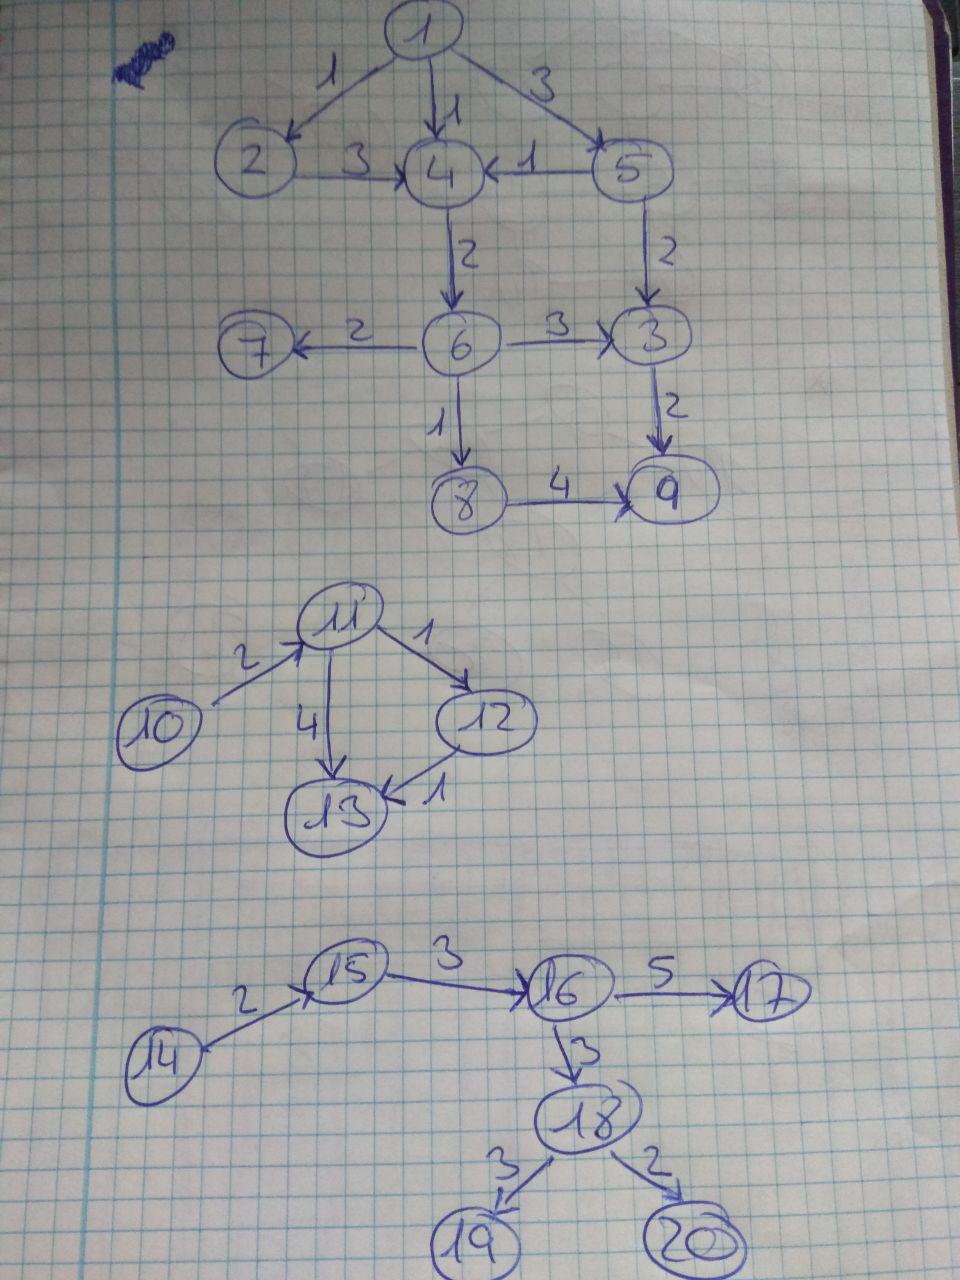 1
1 1 3
2 3 4 1 5
2 2
7 2 6 3 3
1 2
8 4 9
11
2 1
10 4 12
13 1
15 3 16 5 17
2
14 3
18
3 2
19 20